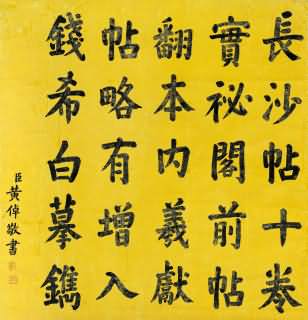 長沙帖十卷
實祕閣前帖
翻本內羲獻
帖略有增入
錢希白摹鐫
臣黃倬敬書